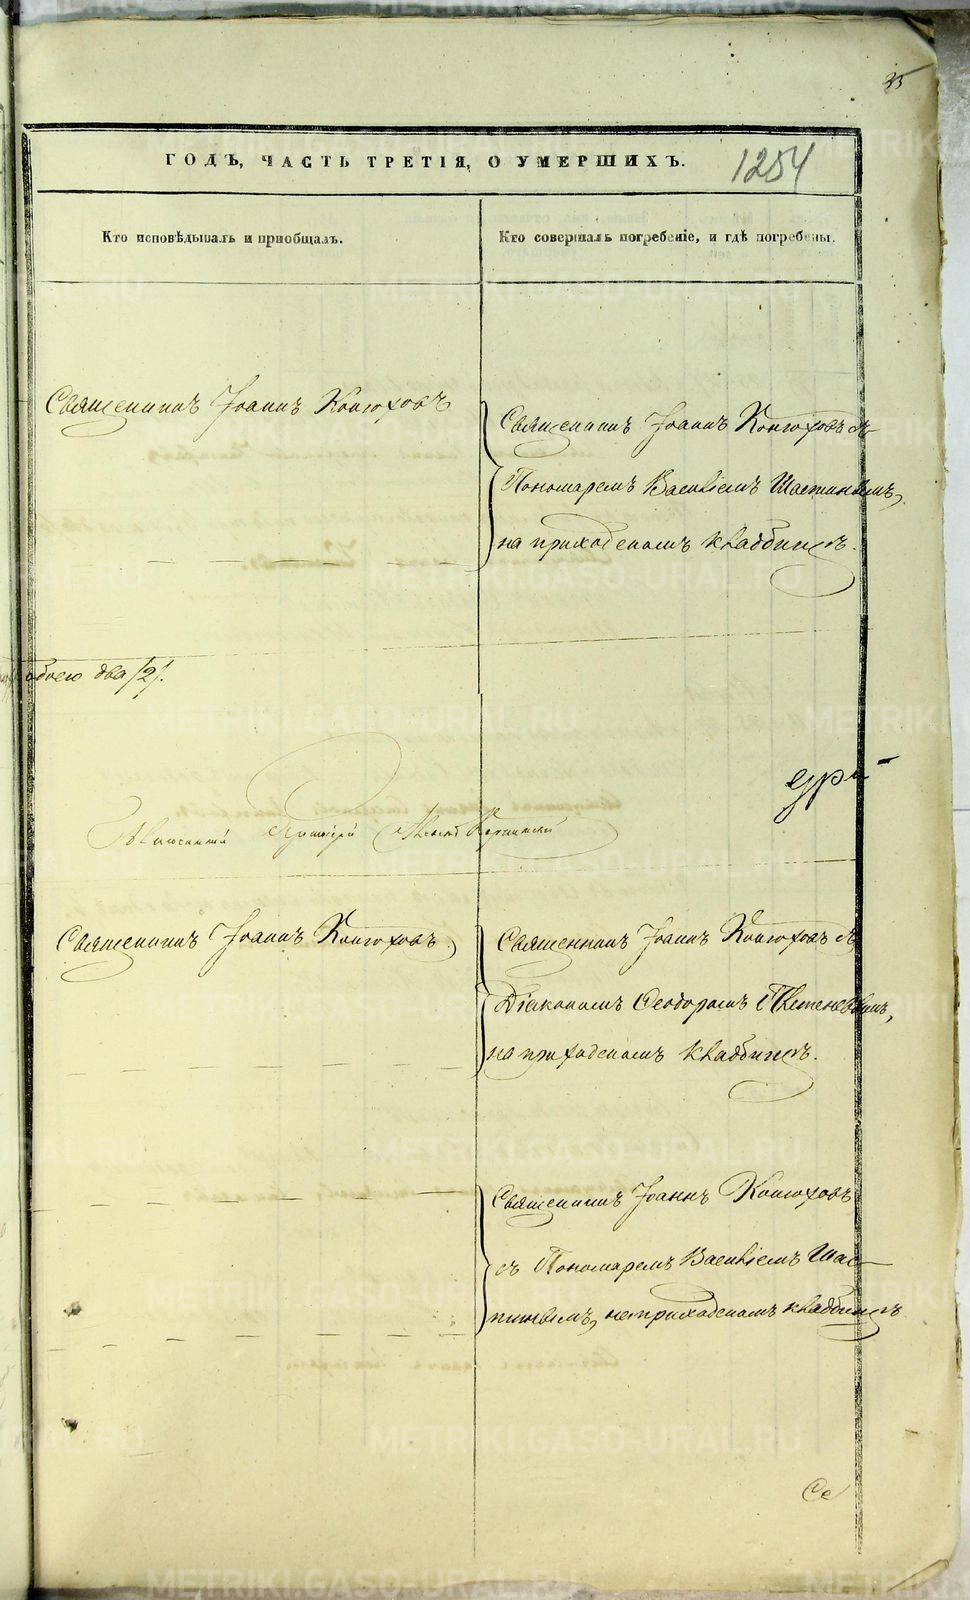 35
ГОДЪ, ЧАСТЬ ТРЕТІЯ, О УМЕРШИХЪ.
1254
Кто исповѣдывалъ и пріобщалъ.
Кто совершалъ погребеніе, и гдѣ погребены.
Священникъ Іоаннъ Конюховъ
Священникъ Іоаннъ Конюховъ съ
Пономаремъ Василіемъ
на приходскомъ кладбищѣ.
обоего два /2/.
Священникъ Іоаннъ Конюховъ,
Священникъ Іоаннъ Конюховъ съ
Діакономъ Ѳеодоромъ
на приходскомъ кладбищѣ.
Священникъ Іоаннъ Конюховъ
съ Пономаремъ Василіемъ
на приходскомъ кладбищѣ
Се
METRIKI.GASO-URAL.RU